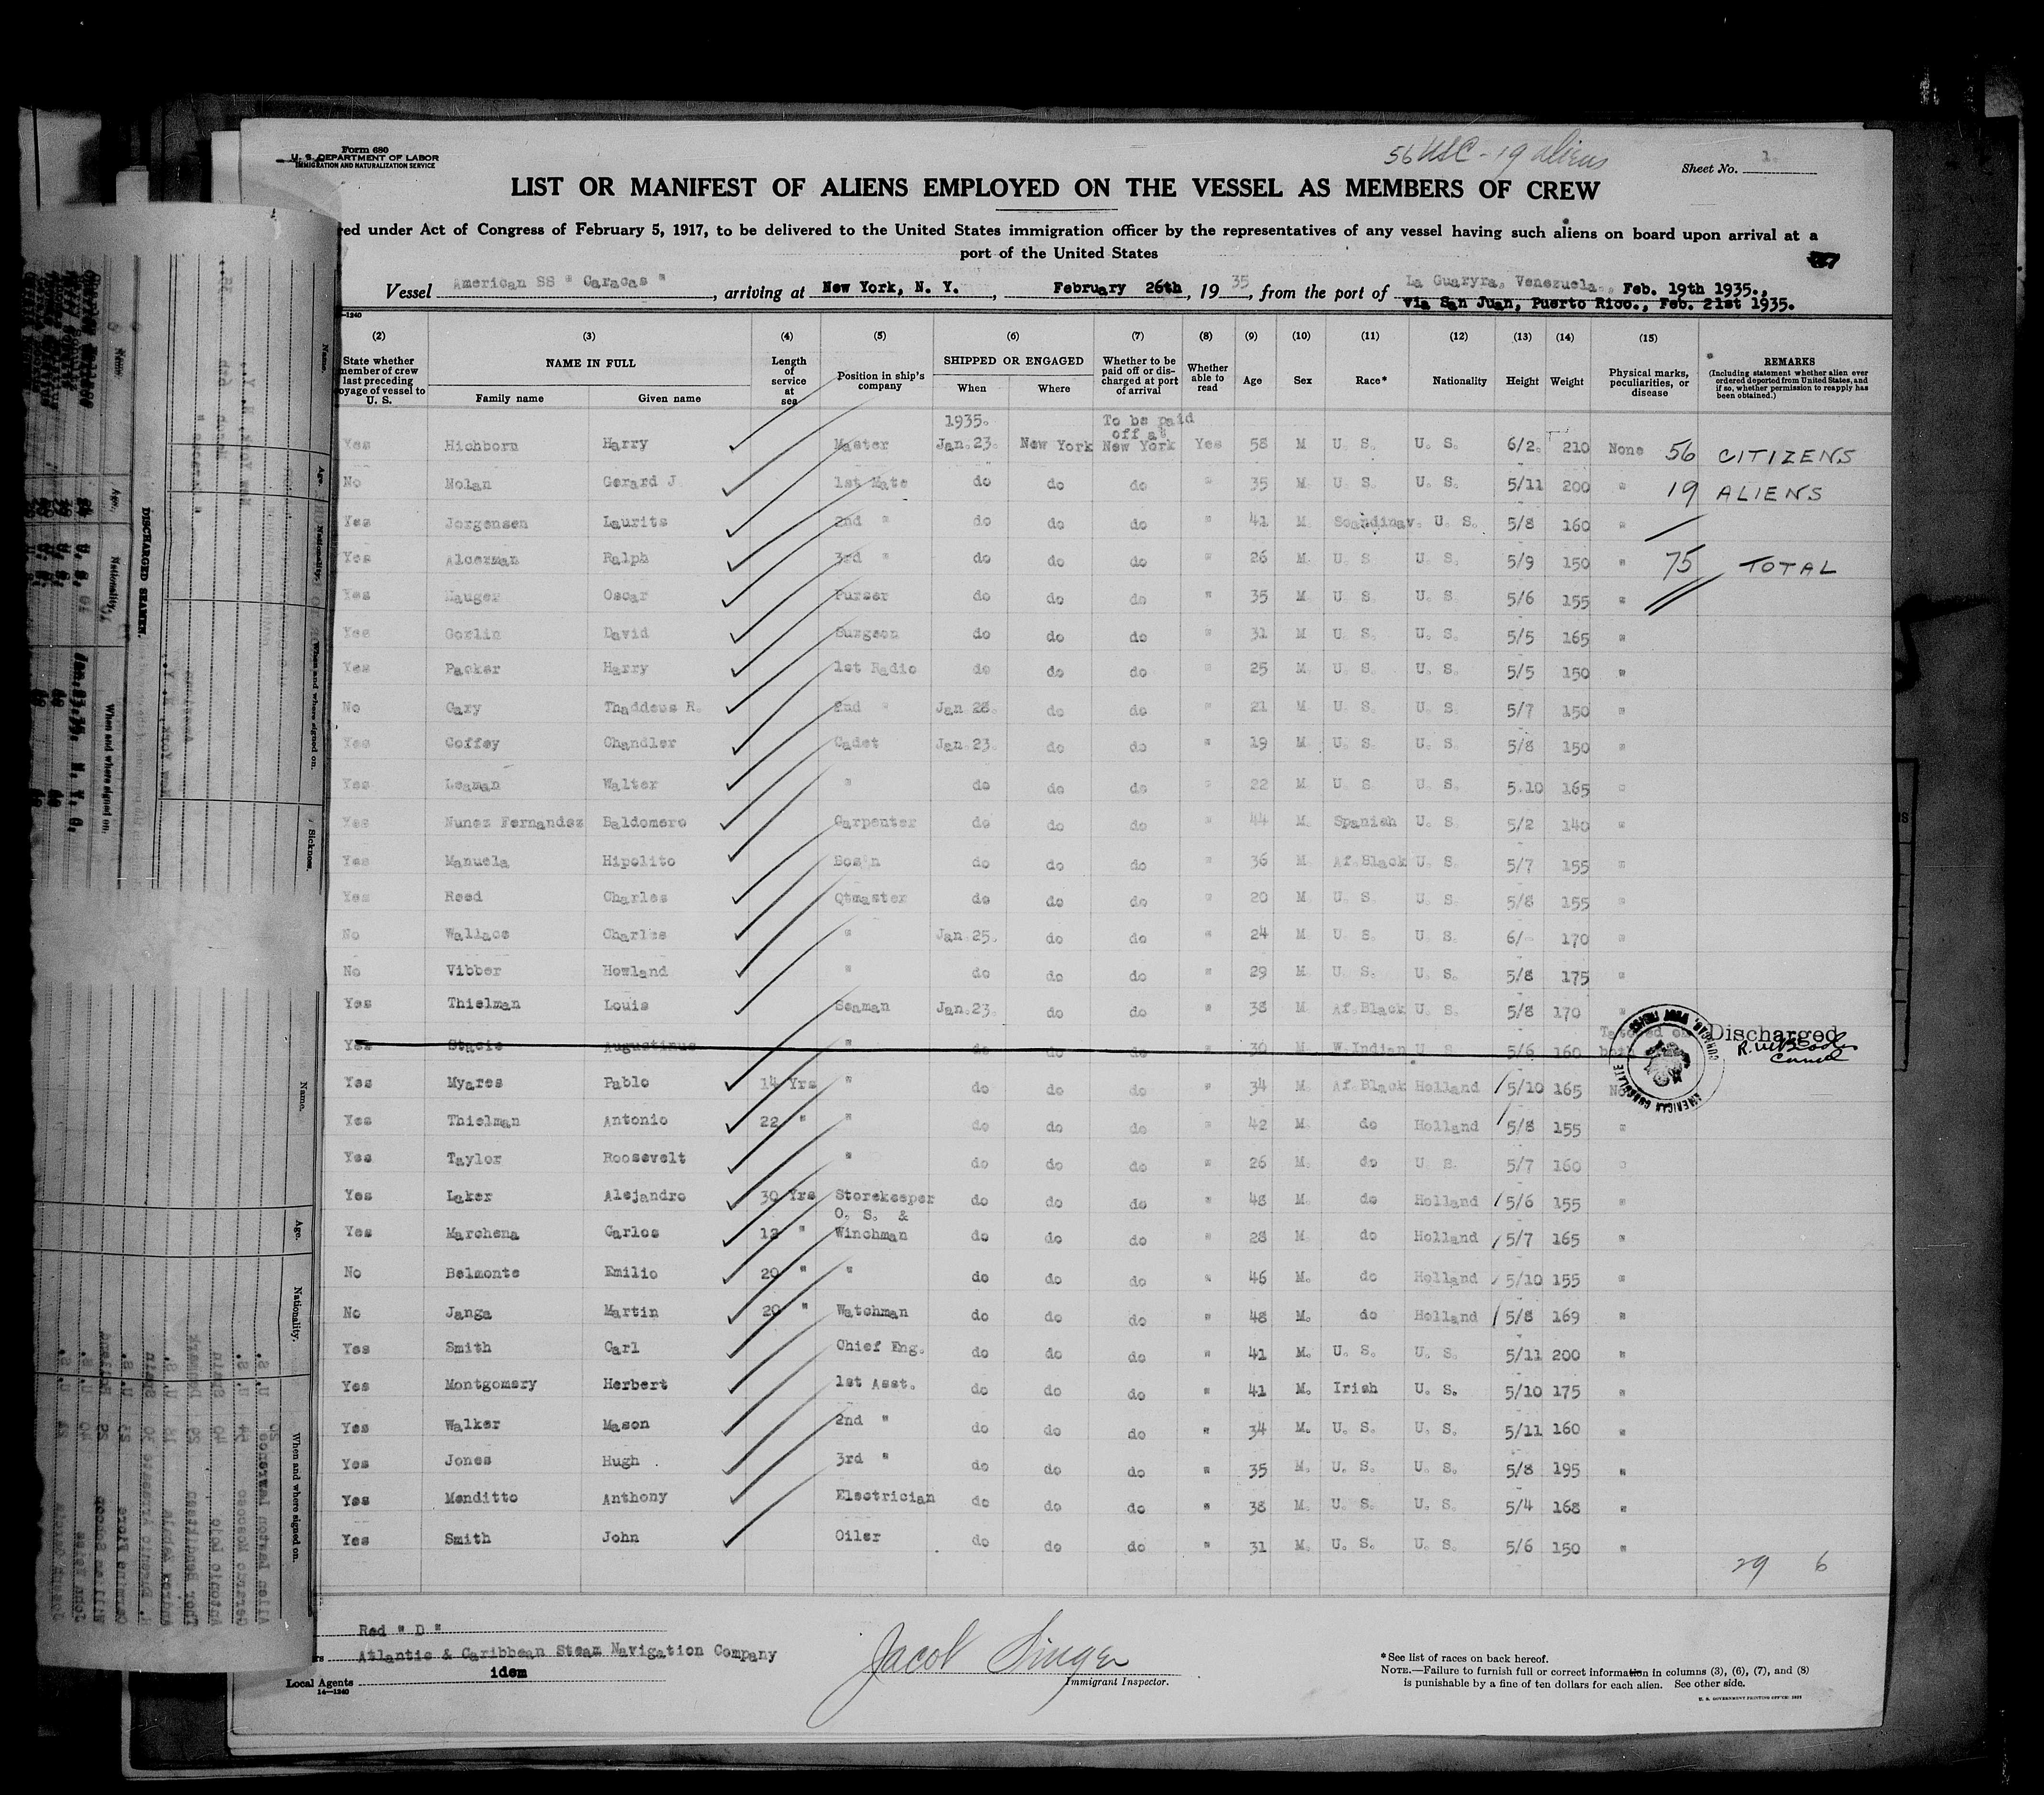 Form 680
U. S. DEPARTMENT OF LABOR
IMMIGRATION AND NATURALIZATION SERVICE
56 USC - 19 aliens
Sheet No. 1.
LIST OR MANIFEST OF ALIENS EMPLOYED ON THE VESSEL AS MEMBERS OF CREW
red under Act of Congress of February 5, 1917, to be delivered to the United States immigration officer by the representatives of any vessel having such aliens on board upon arrival at a
port of the United States
Vessel American SS " Caracas ", arriving at New York, N. Y., February 26th, 1935, from the port of La Guaryra, Venezuela., Feb. 19th 1935.,
via San Juan, Puerto Rico., Feb. 21st 1935.
(2) (3) (4) (5) (6) (7) (8) (9) (10) (11) (12) (13) (14) (15)
State whether member of crew last preceding voyage of vessel to U. S. NAME IN FULL Family name Given name Length of service at sea Position in ship's company SHIPPED OR ENGAGED When Where Whether to be paid off or discharged at port of arrival Whether able to read Age Sex Race* Nationality Height Weight Physical marks, peculiarities, or disease REMARKS (Including statement whether alien ever ordered deported from United States, and if so, whether permission to reapply has been obtained.)
1935. To be paid
off at
Yes Hichborn Harry Master Jan. 23. New York New York Yes 58 M U. S. U. S. 6/2. 210 None 56 CITIZENS
No Nolan Gerard J. 1st Mate do do do " 35 M. U. S. U. S. 5/11 200 " 19 ALIENS
Yes Jorgensen Laurits 2nd " do do do " 41 M. Scandinav. U. S. 5/8 160 "
Yes Alderman Ralph 3rd " do do do " 26 M. U. S U. S. 5/9 150 " 75 TOTAL
Yes Mauger Oscar Purser do do do " 35 M U. S U. S. 5/6 155 "
Yes Gorlin David Surgeon do do do " 31 M U. S. U. S. 5/5 165 "
Yes Packer Harry 1st Radio do do do " 25 M. U. S. U. S. 5/5 150 "
No Caxy Thaddeus R. 2nd " Jan 28. do do " 21 M. U. S. U. S. 5/7 150 "
Yes Coffey Chandler Cadet Jan. 23. do do " 19 M. U. S. U. S. 5/8 150 "
Yes Leaman Walter " do do do " 22 M U. S. U. S. 5.10 165 "
Yes Nunez Fernandez Baldomero Carpenter do do do " 44 M. Spanish U. S. 5/2 140 "
Yes Manuela Hipolito Bos'n do do do " 36 M. Af.Black U. S. 5/7 155 "
Yes Reed Charles Qtmaster do do do " 20 M. U. S. U. S. 5/8 155 "
No Wallace Charles " Jan. 25. do do " 24 M. U. S. U. S. 6/- 170 "
No Vibber Howland " do do do " 29 M. U. S. U. S. 5/8 175 "
Yes Thielman Louis Seaman Jan. 23. do do " 38 M. Af.Black U. S. 5/8 170 "
Yes Stacie Augustinus " do do do " 30 M. W.Indian U. S. 5/6 160 both Discharged
AMERICAN CONSULATE
Yes Myares Pablo 14 Yrs " do do do " 34 M. Af.Black Holland 5/10 165 No
Yes Thielman Antonio 22 " " do do do " 42 M. do Holland 5/8 155 "
Yes Taylor Roosevelt " do do do " 26 M. do U. S. 5/7 160 "
Yes Laker Alejandro 30 Yrs Storekeeper do do do " 48 M. do Holland 5/6 155 "
O. S. &
Yes Marchena Carlos 12 " Winchman do do do " 28 M do Holland 5/7 165 "
No Belmonte Emilio 20 " " do do do " 46 M. do Holland 5/10 155 "
No Janga Martin 20 " Watchman do do do " 48 M. do Holland 5/8 169 "
Yes Smith Carl Chief Eng. do do do " 41 M. U. S. U. S. 5/11 200 "
Yes Montgomery Herbert 1st Asst. do do do " 41 M. Irish U. S. 5/10 175 "
Yes Walker Mason 2nd " do do do " 34 M. U. S. U. S. 5/11 160 "
Yes Jones Hugh 3rd " do do do " 35 M. U. S. U. S. 5/8 195 "
Yes Menditto Anthony Electrician do do do " 38 M. U. S. U. S. 5/4 168 "
Yes Smith John Oiler do do do " 31 M. U. S. U. S. 5/6 150 "
29 6
Red " D "
Atlantic & Caribbean Steam Navigation Company
idem
Local Agents
14—1240
Jacob Singer
Immigrant Inspector.
*See list of races on back hereof.
NOTE.—Failure to furnish full or correct information in columns (3), (6), (7), and (8)
is punishable by a fine of ten dollars for each alien. See other side.
DISCHARGED SEAMEN.
Name. Age. Nationality. When and where signed on. Sickness.